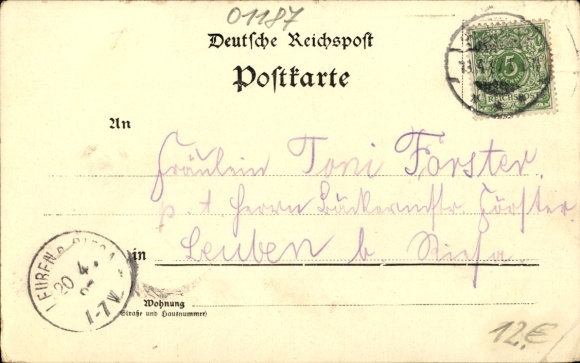 01187
Deutsche Reichspost
Postkarte
5
REICHSPOST
An
Fräulein Toni Förster.
p. A. Herrn Bäckermstr Förster
in Leuben b Riesa.
20 4.
1-7 V.
Wohnung
(Straße und Hausnummer)
12,€